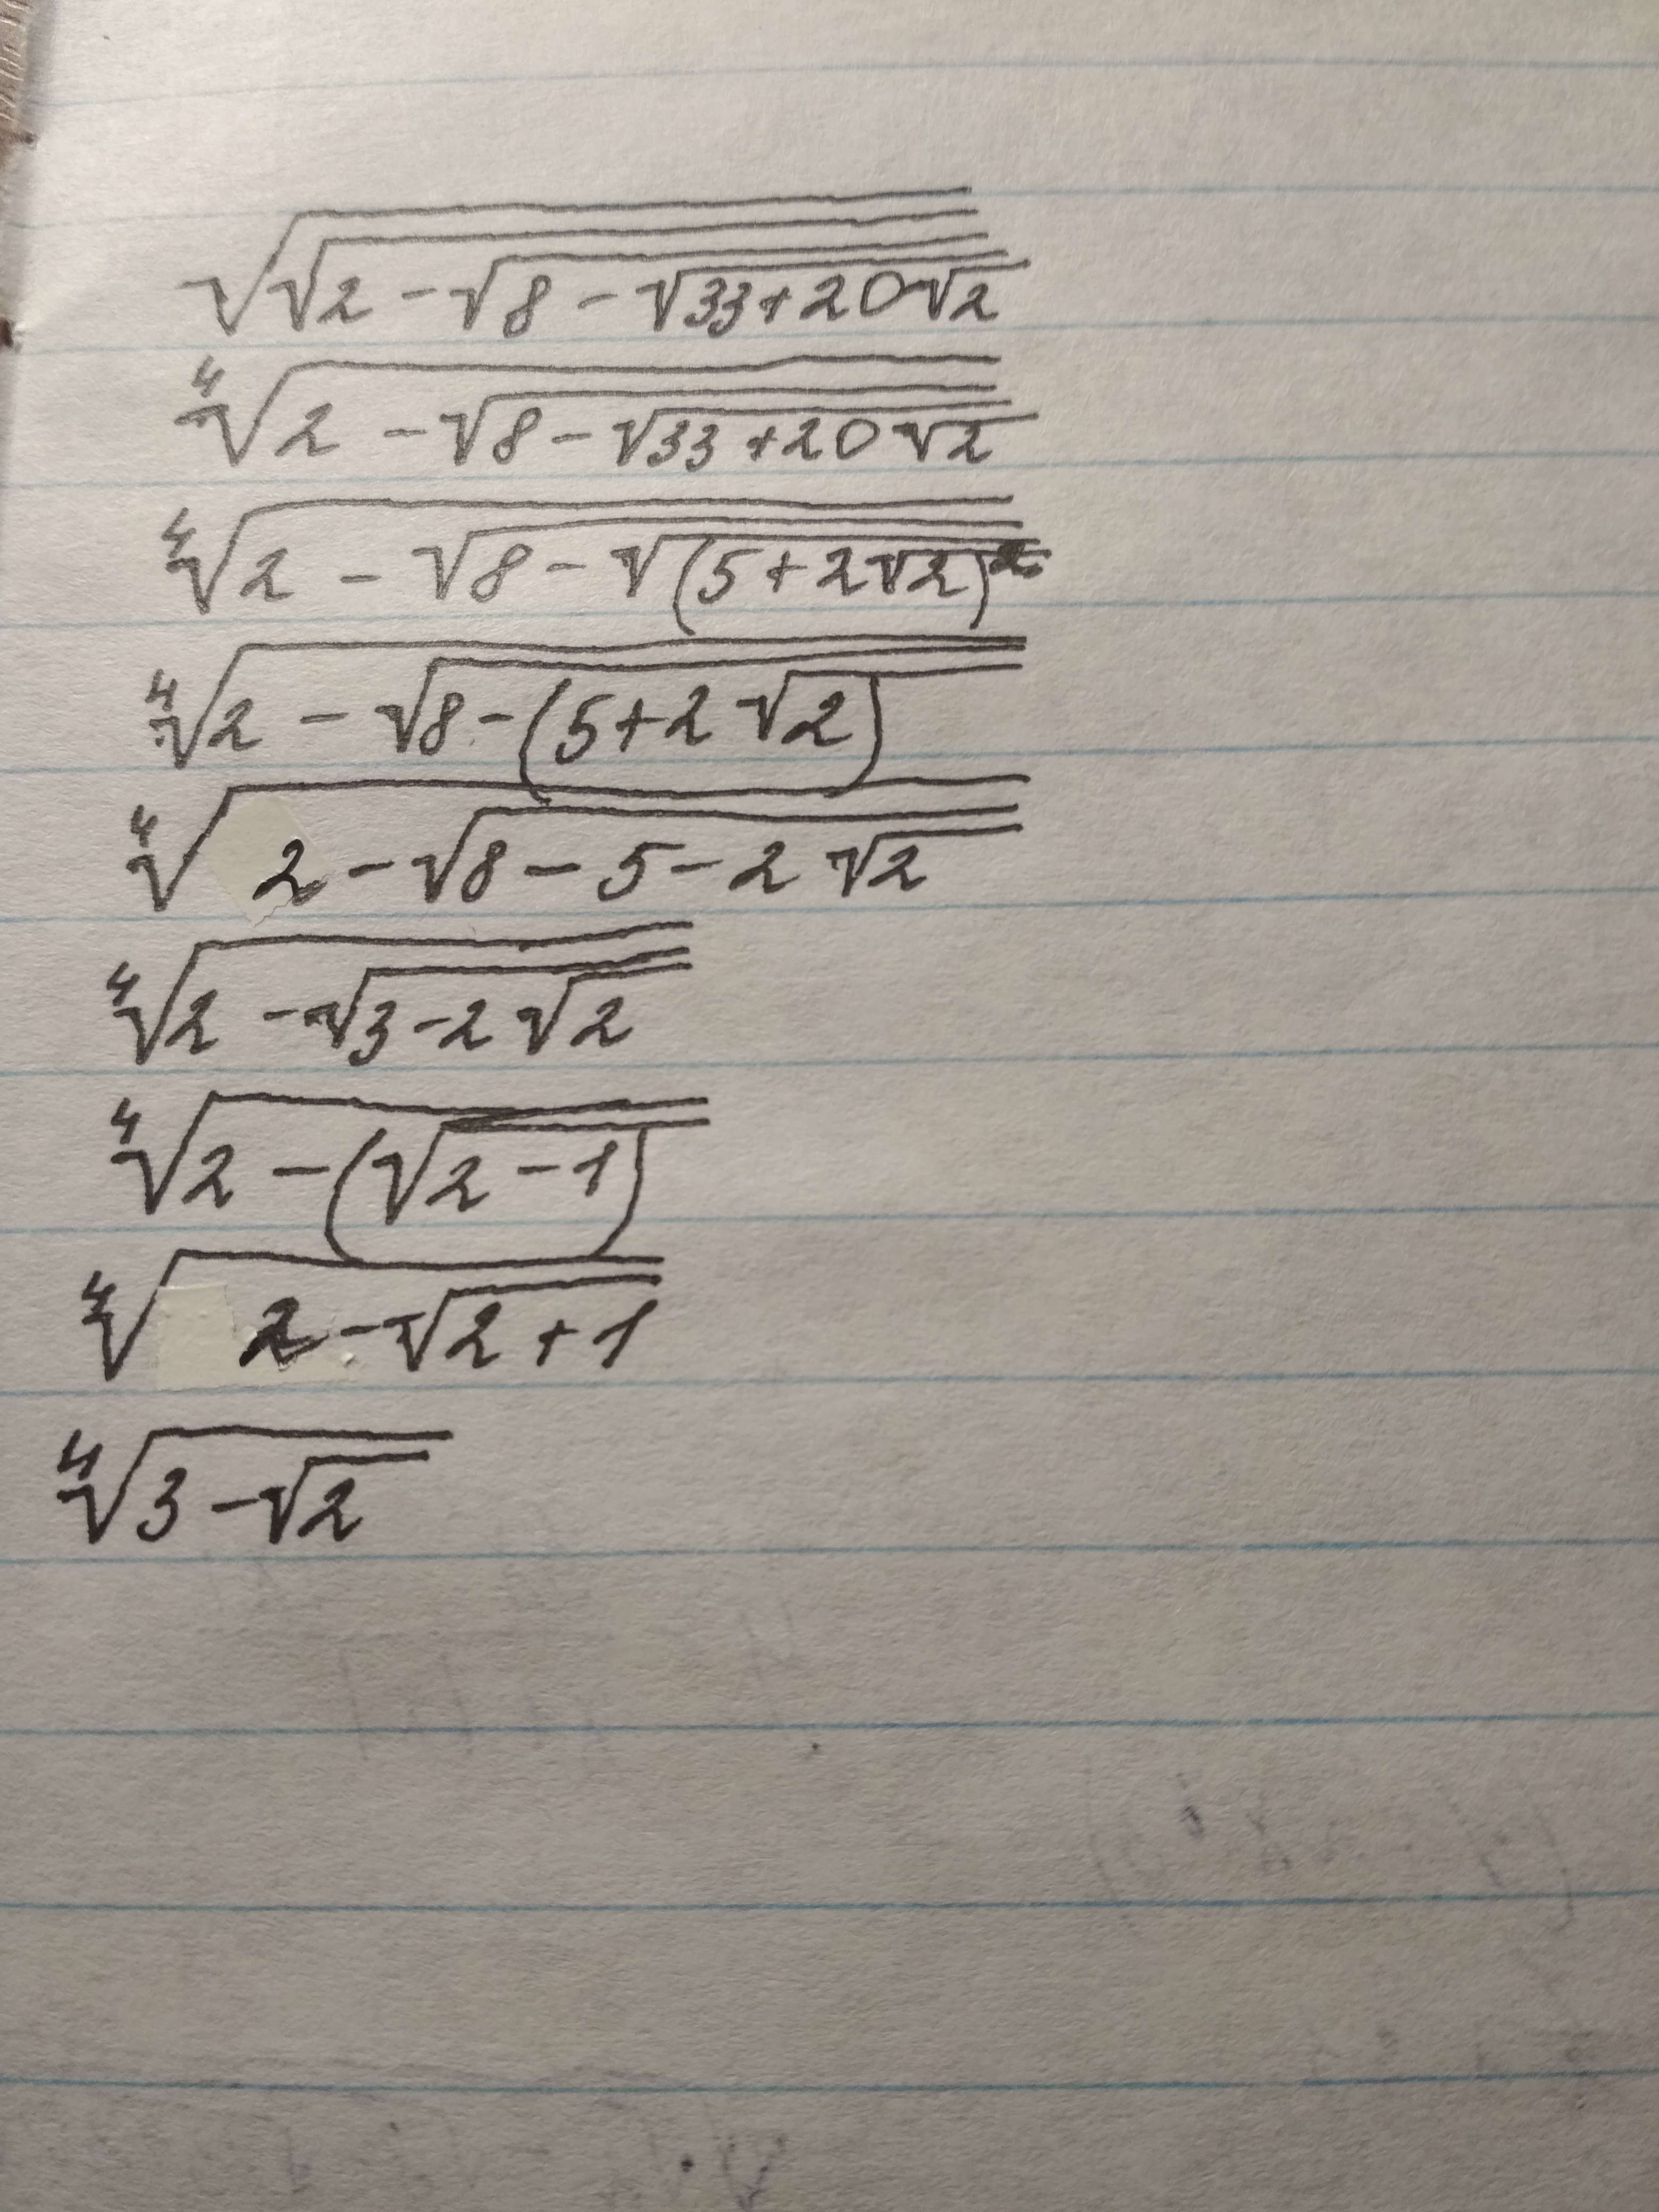 √√2 - √8 - √33+20√2
⁴√2 - √8 - √33+20√2
⁴√2 - √8 - √(5+2√2)²
⁴√2 - √8 - (5+2√2)
⁴√2 - √8 - 5 - 2√2
⁴√2 - √3 - 2√2
⁴√2 - (√2 - 1)
⁴√2 - √2 + 1
⁴√3 - √2